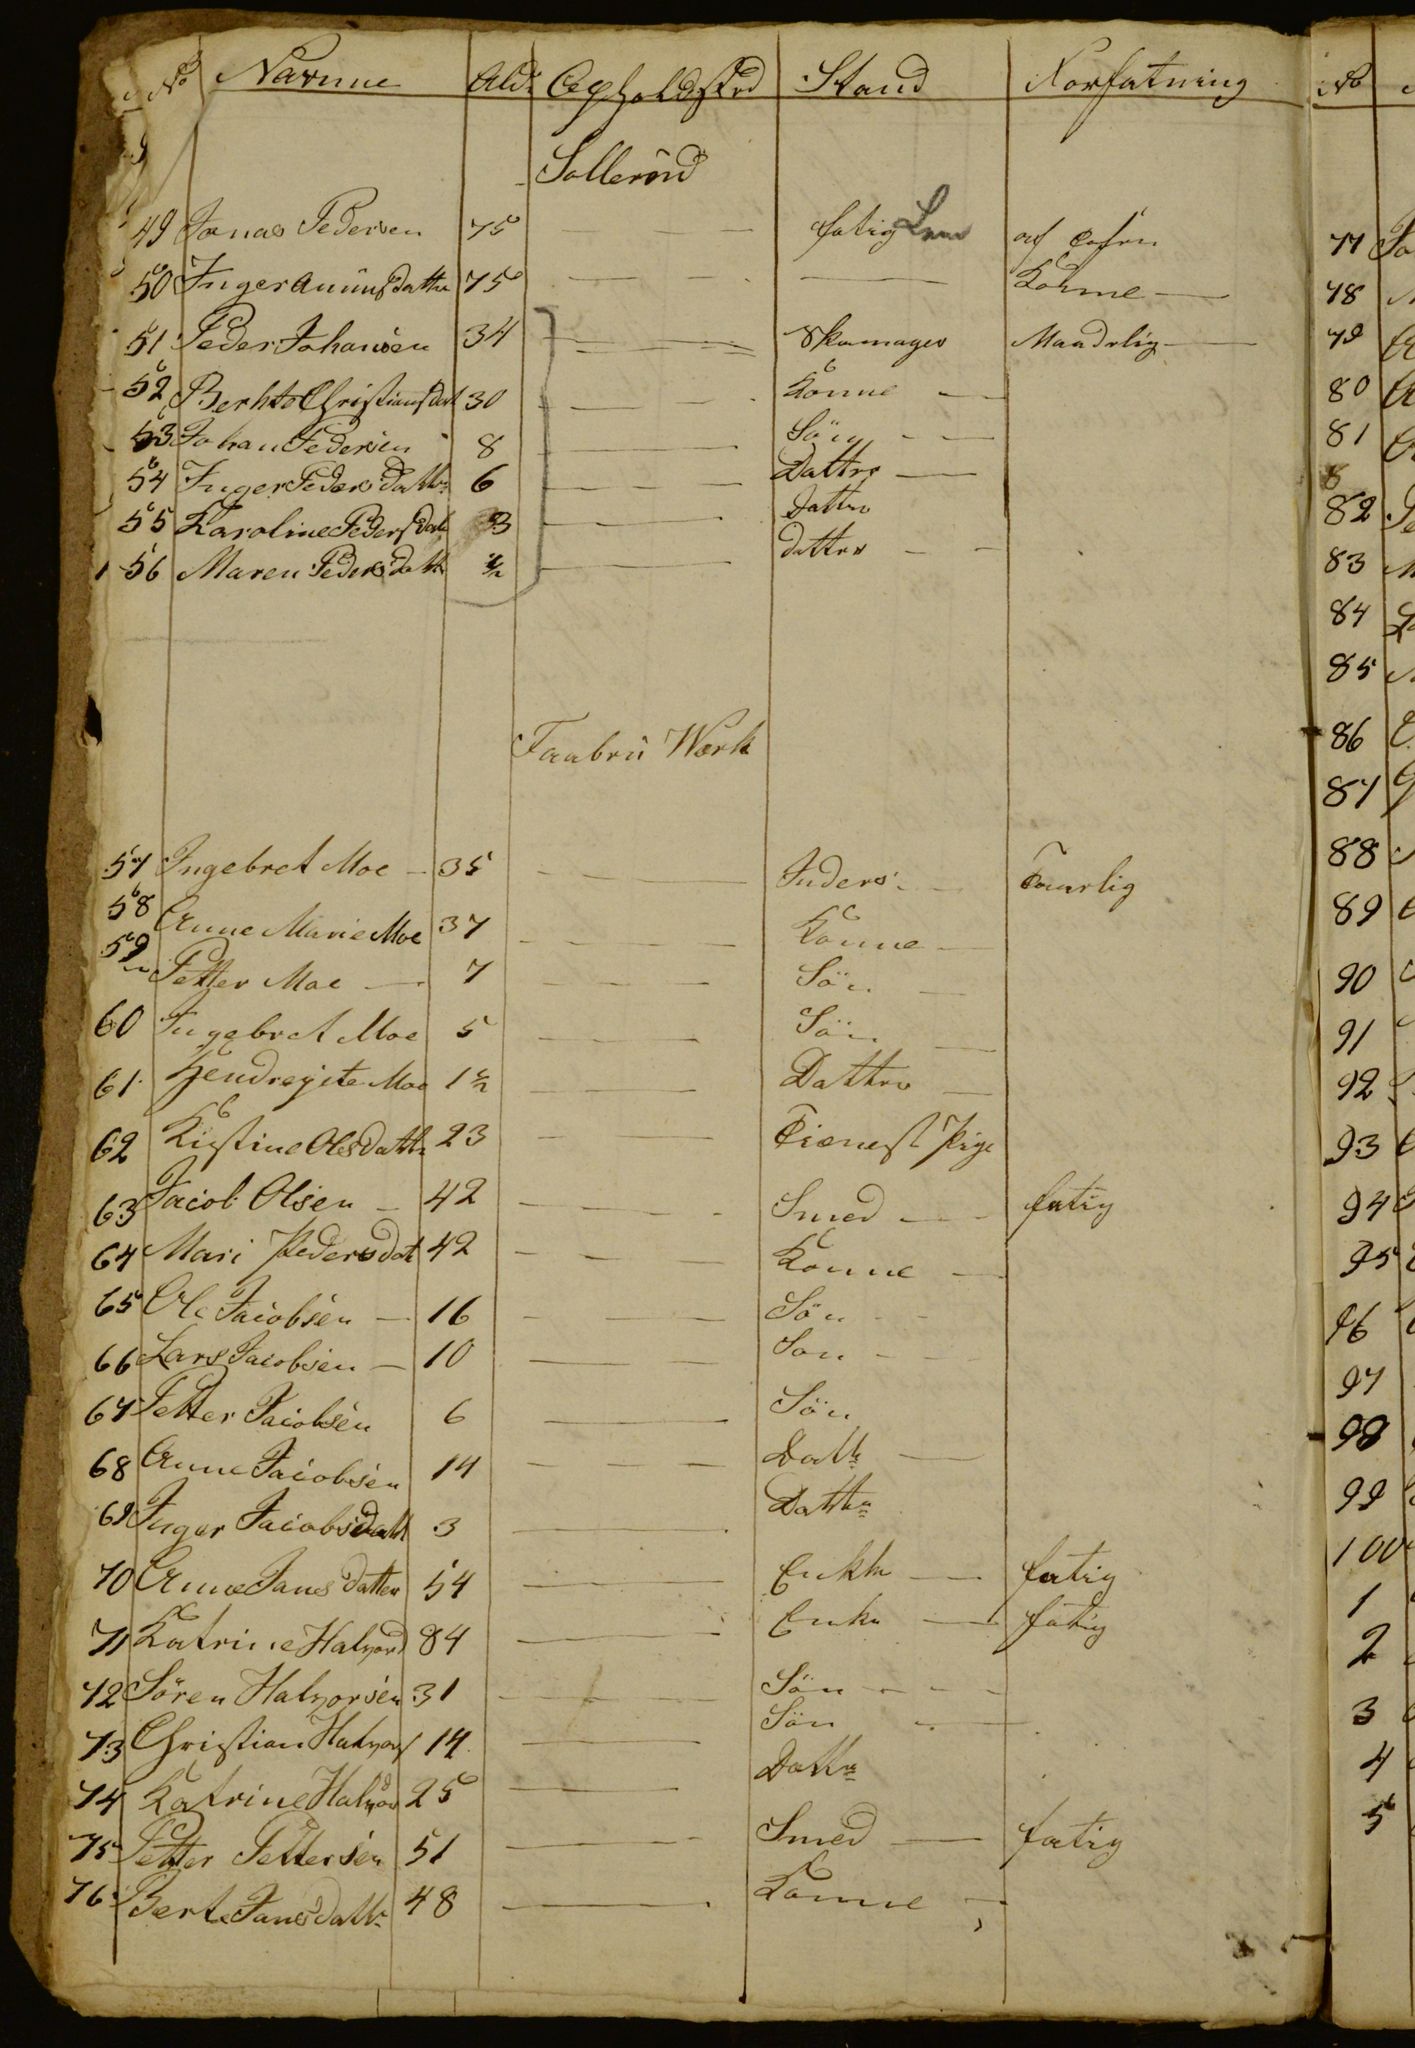 No Navnne Ald: Opholdsted Stand Forfatning
Sollerûd
49 Jonas Pedersen 75 — — — fatig Lem
50 Inger datter 75 — — — — Konne —
51 Peder Johansen 34 — — Skomager Maadelig —
52 Berhte Christiansdat 30 — — — Konne —
53 Johan Pedersen 8 — Sön — —
54 Inger Peders Datt: 6 — — — Datter —
55 Karoline Peders dat 3 — — Datter
56 Maren Peders datt 1/2 — — datter — —
Faabrü Werk
57 Ingebret Moe — 35 — — Inders: —
58 Anne Marie Moe 37 — — — Konne —
59 Petter Moe — 7 — — — Sön —
60 Ingebret Moe 5 — — Sön —
61 Hendregite Moe 1 1/2 — — Datter —
62 Kistine Olesdatt: 23 — — Tienest Pige
63 Jacob Olsen — 42 — — — Smed — — fatig
64 Mari Pedersdat 42 — — — Konne —
65 Ole Jacobsen — 16 — — Sön — —
66 Lars Jacobsen — 10 — — Son — —
67 Petter Jacobsen 6 — — Sön
68 Anne Jacobsen 14 — — — Datt: —
69 Inger Jacobsdatt 3 — — Datter
70 Anne Jans Datter 54 — — Enkke — fatig
71 Katrine Halvord 84 — — Enke — fatig
72 Sören Halvorsen 31 — — — Sön — — —
73 Christian Halvors 14 — — Sön — —
74 Katrine Halvor 25 — — Datter
75 Petter Pettersen 51 — — Smed — fatig
76 Berte Jans datt: 48 — — Konne —
No
77
78
79
80
81
8
82
83
84
85
86
87
88
89
90
91
92
93
94
95
96
97
98
99
100
1
2
3
4
5